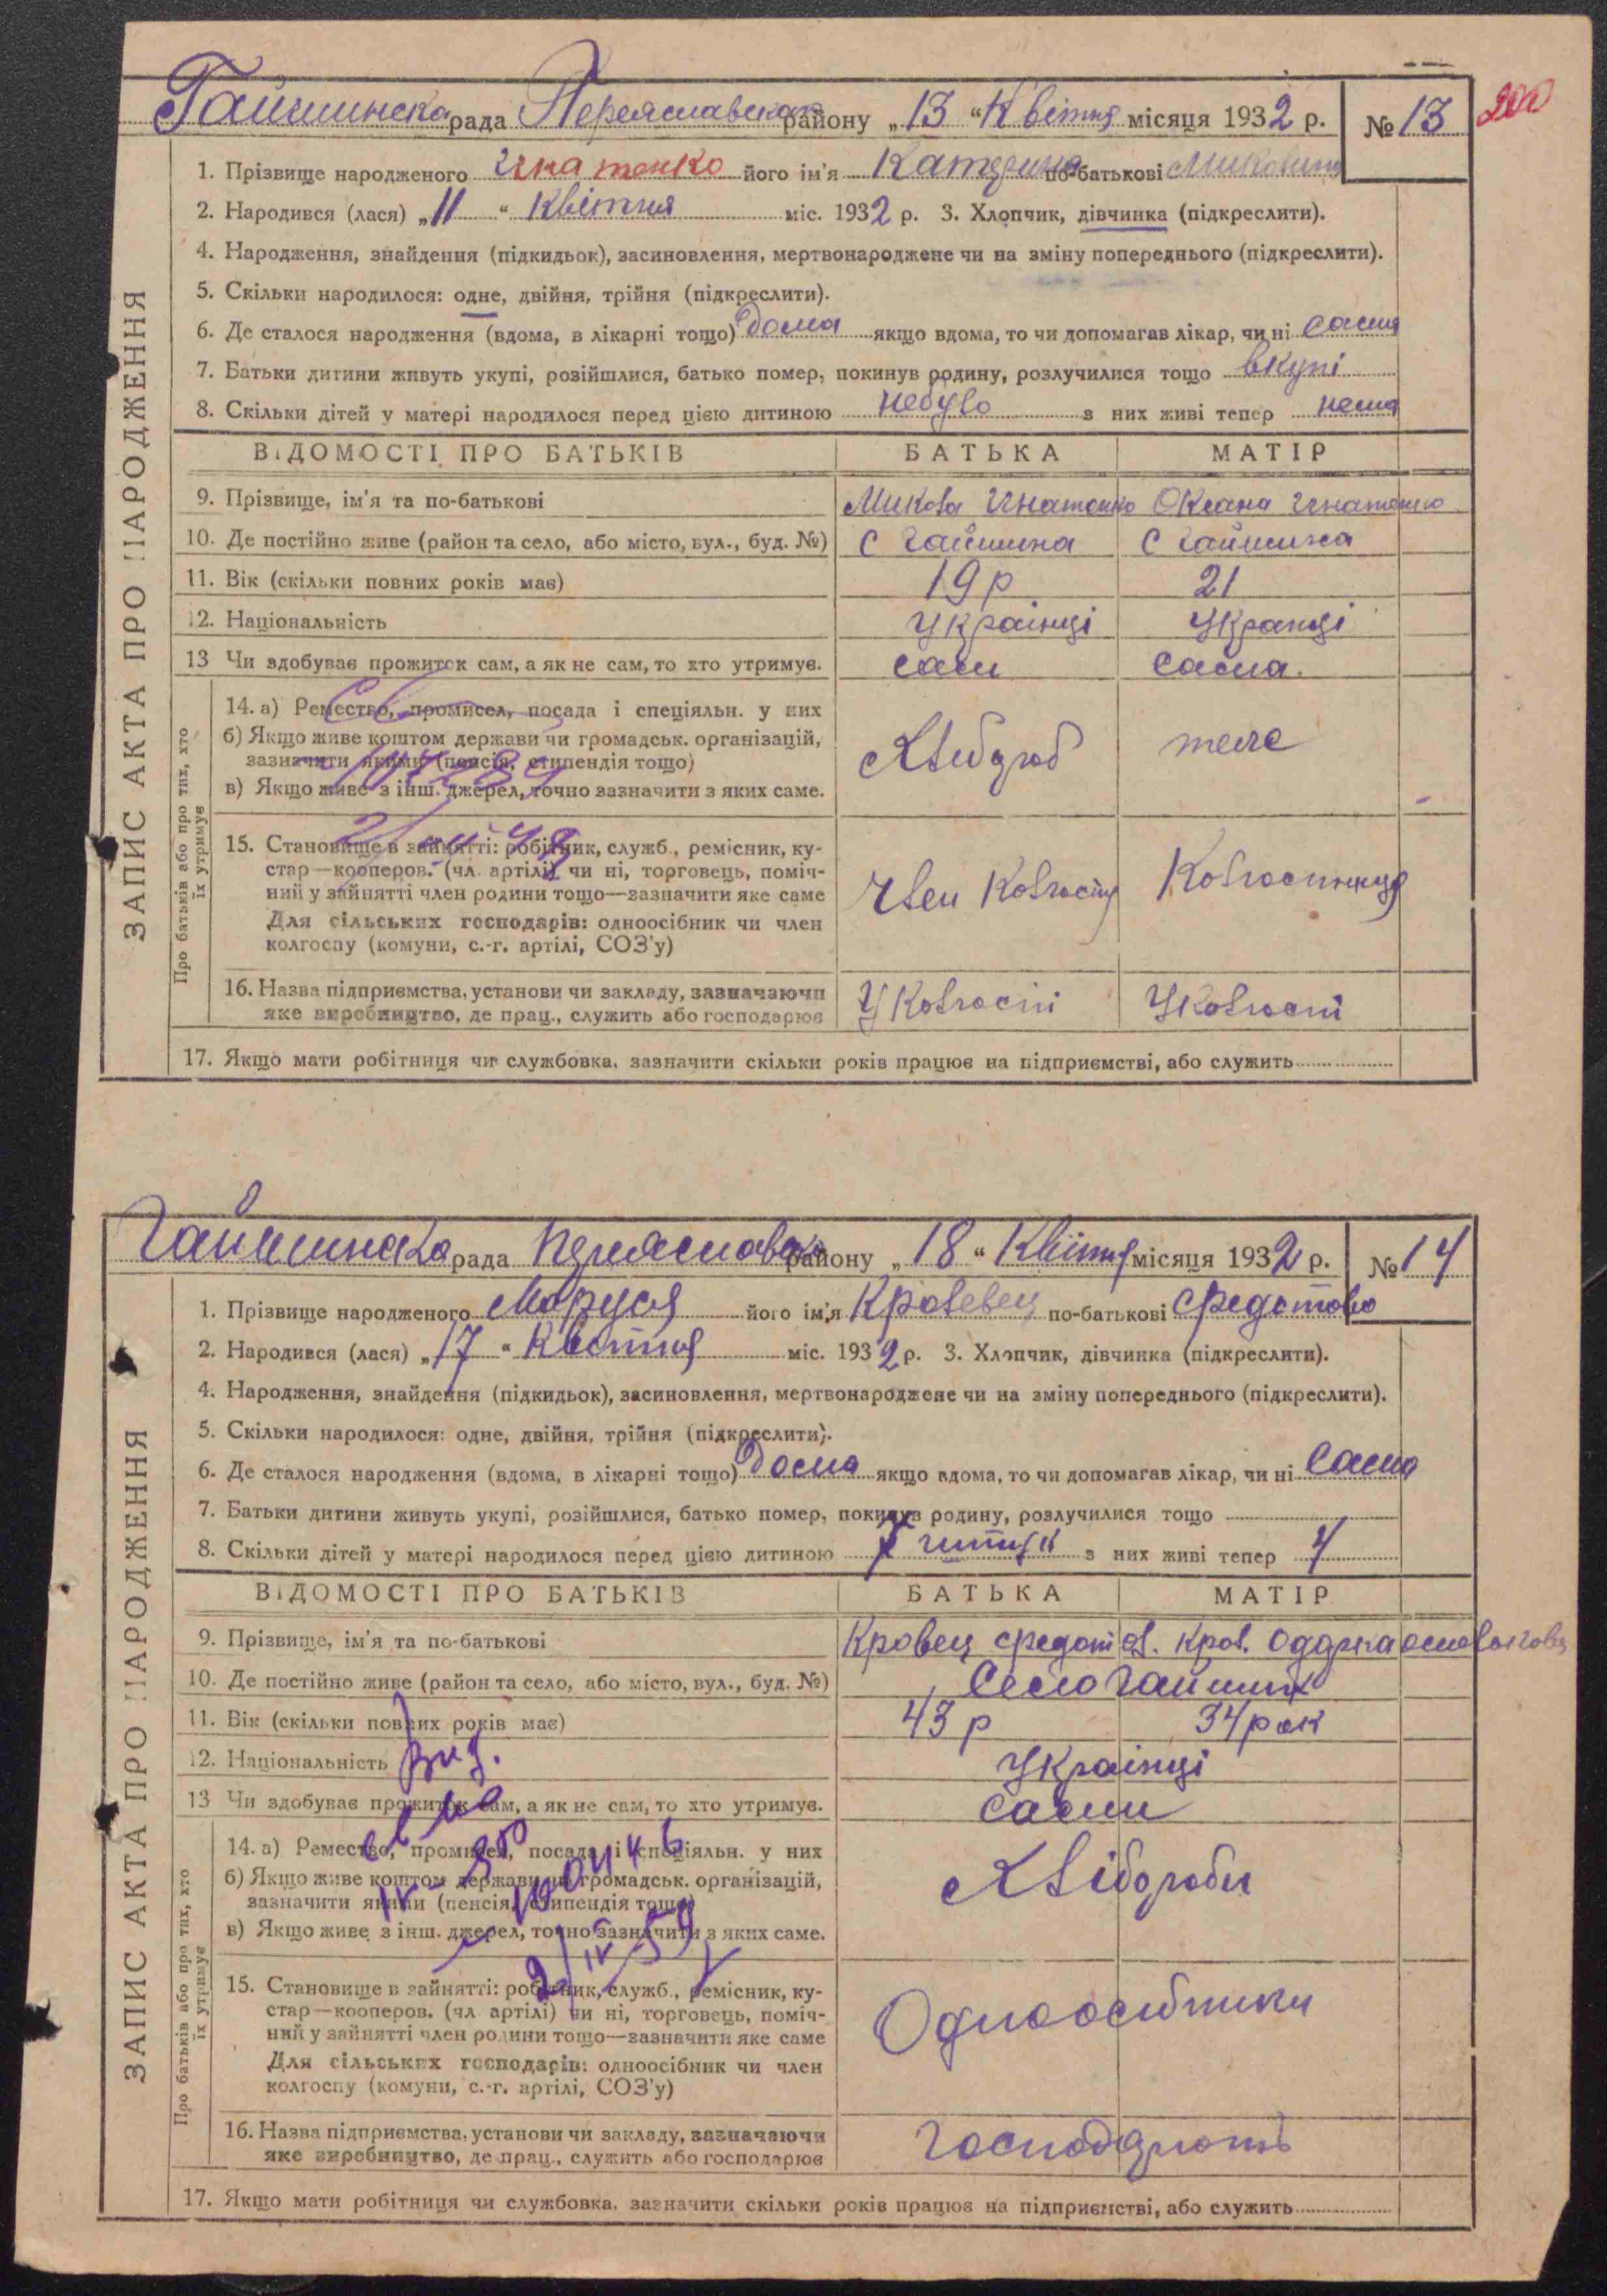 Гайшинска рада Переяславско району „13“ Квітня місяця 1932 р. № 13
200
1. Прізвище народженого Ігнатенко його ім'я Катерина по-батькові
2. Народився (лася) „11“ Квітня міс. 1932 р. 3. Хлопчик, дівчинка (підкреслити).
4. Народження, знайдення (підкидьок), засиновлення, мертвонароджене чи на зміну попереднього (підкреслити).
5. Скільки народилося: одне, двійня, трійня (підкреслити).
6. Де сталося народження (вдома, в лікарні тощо) Дома якщо вдома, то чи допомагав лікар, чи ні сама
7. Батьки дитини живуть укупі, розійшлися, батько помер, покинув родину, розлучилися тощо вкупі
8. Скільки дітей у матері народилося перед цією дитиною небуло з них живі тепер нема
ВІДОМОСТІ ПРО БАТЬКІВ БАТЬКА МАТІР
9. Прізвище, ім'я та по-батькові Микола Ігнатенко Оксана Ігнатенко
10. Де постійно живе (район та село, або місто, вул., буд. №) С Гайшина С Гайшина
11. Вік (скільки повних років має) 19 р 21
12. Національність Українці Укранці
13 Чи здобуває прожиток сам, а як не сам, то хто утримує. сам сама.
14. а) Ремество, промисел, посада і спеціяльн. у них
б) Якщо живе коштом держави чи громадськ. організацій,
зазначити якими (пенсія, стипендія тощо)
в) Якщо живе з інш. джерел, точно зазначити з яких саме.
Хлібороб теже
15. Становище в зайнятті: робітник, служб., ремісник, ку-
стар—кооперов. (чл. артілі) чи ні, торговець, поміч-
ний у зайнятті член родини тощо—зазначити яке саме
Для сільських господарів: одноосібник чи член
колгоспу (комуни, с.-г. артілі, СОЗ'у)
Член
16. Назва підприємства, установи чи закладу, зазначаючи
яке виробництво, де прац., служить або господарює
У Колгоспі У Колгоспі
17. Якщо мати робітниця чи службовка, зазначити скільки років працює на підприємстві, або служить
ЗАПИС АКТА ПРО НАРОДЖЕННЯ
Про батьків або про тих, хто
їх утримує
Гайшинска рада району „18“ Квітня місяця 1932 р. № 14
1. Прізвище народженого Маруся його ім'я по-батькові
2. Народився (лася) „17“ Квітня міс. 1932 р. 3. Хлопчик, дівчинка (підкреслити).
4. Народження, знайдення (підкидьок), засиновлення, мертвонароджене чи на зміну попереднього (підкреслити).
5. Скільки народилося: одне, двійня, трійня (підкреслити).
6. Де сталося народження (вдома, в лікарні тощо) Дома якщо вдома, то чи допомагав лікар, чи ні Сама
7. Батьки дитини живуть укупі, розійшлися, батько помер, покинув родину, розлучилися тощо
8. Скільки дітей у матері народилося перед цією дитиною з них живі тепер 4
ВІДОМОСТІ ПРО БАТЬКІВ БАТЬКА МАТІР
9. Прізвище, ім'я та по-батькові Кровец Одарка
10. Де постійно живе (район та село, або місто, вул., буд. №) Село Гайшин
11. Вік (скільки повних років має) 43 р 34 рок
12. Національність Українці
13 Чи здобуває прожиток сам, а як не сам, то хто утримує. сами
14. а) Ремество, промисел, посада і спеціяльн. у них
б) Якщо живе коштом держави чи громадськ. організацій,
зазначити якими (пенсія, стипендія тощо)
в) Якщо живе з інш. джерел, точно зазначити з яких саме.
Хлібороби
15. Становище в зайнятті: робітник, служб., ремісник, ку-
стар—кооперов. (чл артілі) чи ні, торговець, поміч-
ний у зайнятті член родини тощо—зазначити яке саме
Для сільських господарів: одноосібник чи член
колгоспу (комуни, с.-г. артілі, СОЗ'у)
Одноосібники
16. Назва підприємства, установи чи закладу, зазначаючи
яке виробництво, де прац., служить або господарює
17. Якщо мати робітниця чи службовка, зазначити скільки років працює на підприємстві, або служить
ЗАПИС АКТА ПРО НАРОДЖЕННЯ
Про батьків або про тих, хто
їх утримує